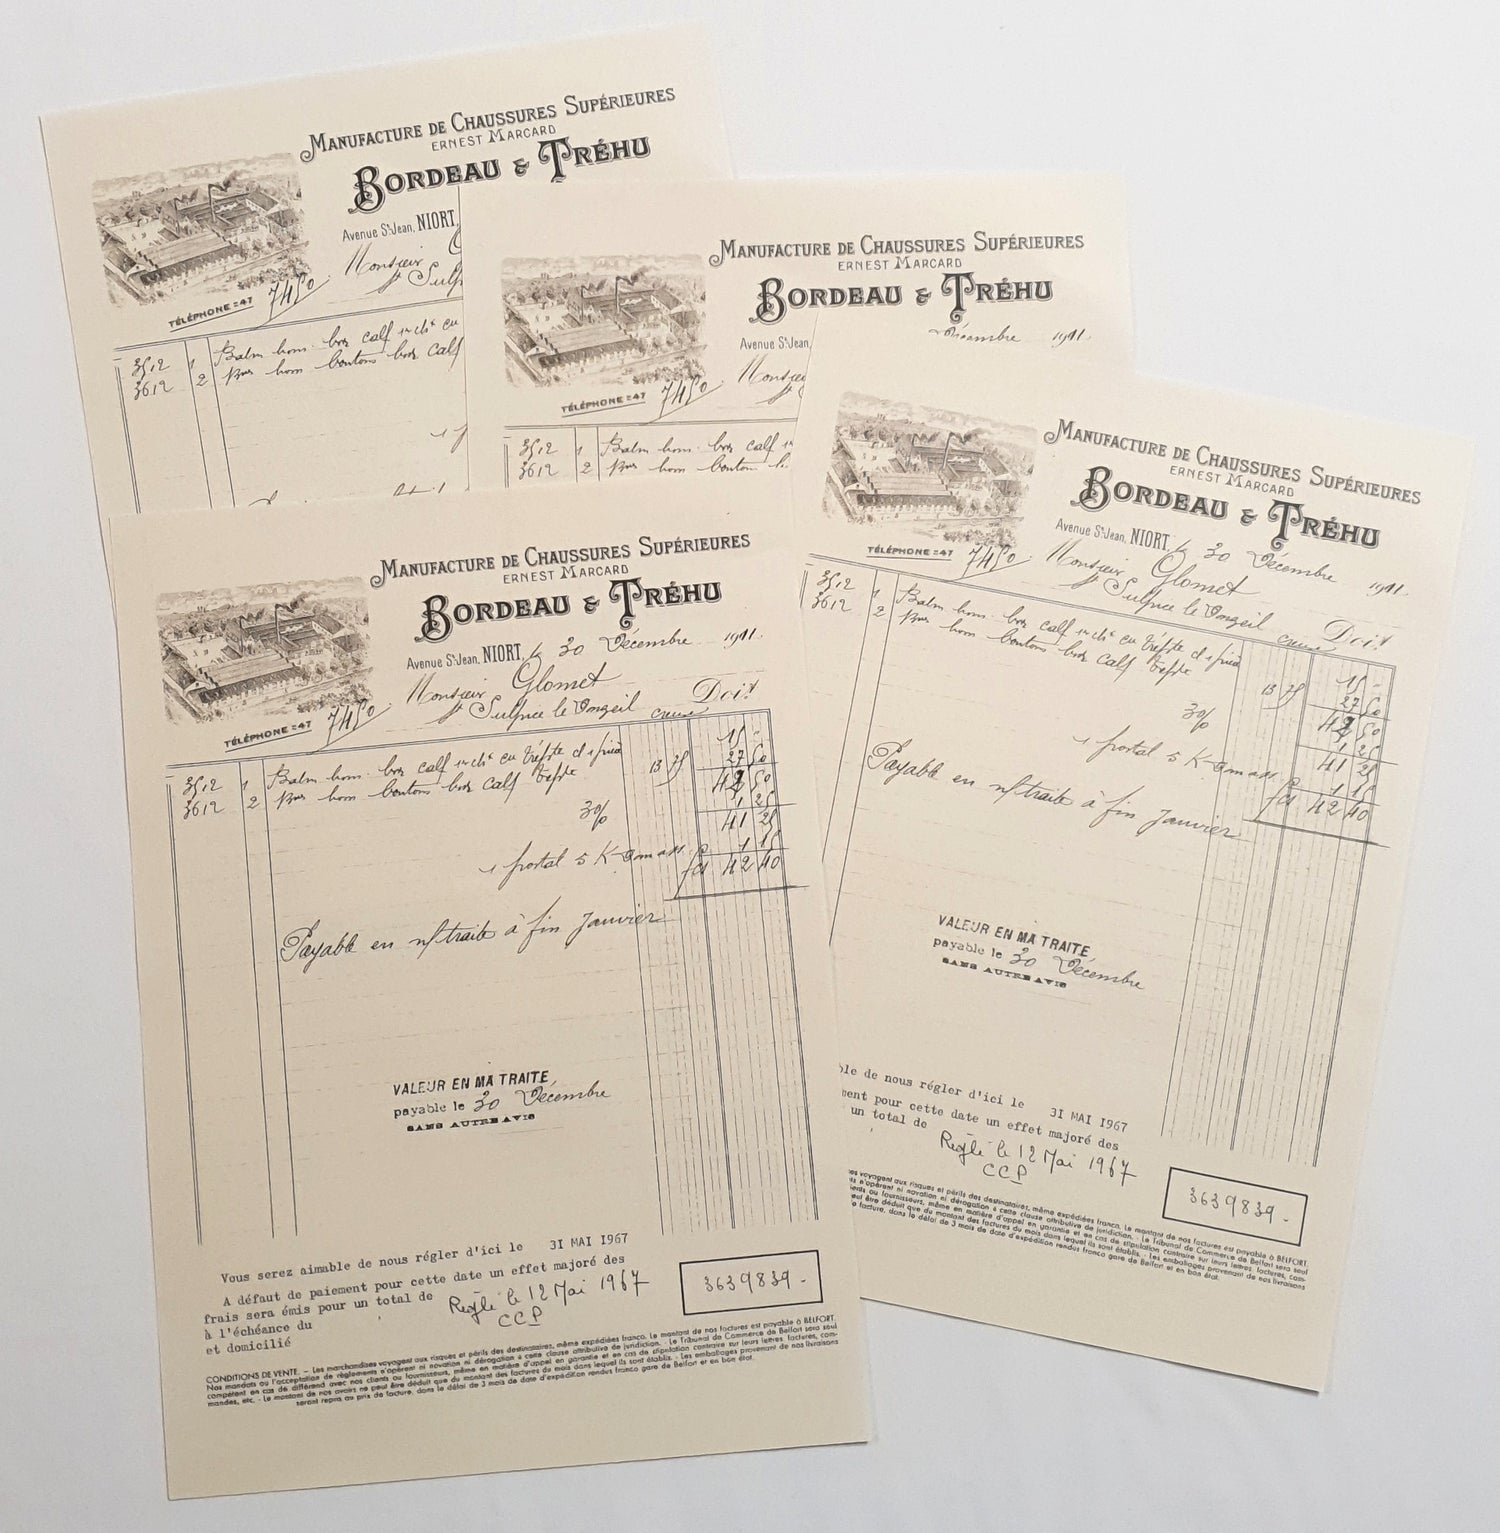 MANUFACTURE DE CHAUSSURES SUPÉRIEURES
ERNEST MARCARD
BORDEAU & TRÉHU
Avenue St Jean, NIORT,
Monsieur
St Sulp
TÉLÉPHONE = 47
7450
3512 1 Balm hom. box calf
3612 2 hom boutons box calf
MANUFACTURE DE CHAUSSURES SUPÉRIEURES
ERNEST MARCARD
BORDEAU & TRÉHU
Décembre 1911.
Avenue St Jean,
Monsieu
TÉLÉPHONE = 47
7450
3512 1 Balm hom. box calf
3612 2 hom boutons
MANUFACTURE DE CHAUSSURES SUPÉRIEURES
ERNEST MARCARD
BORDEAU & TRÉHU
Avenue St Jean, NIORT, le 30 Décembre 1911.
Monsieur Glomet
St Sulpice le Creuse Doit
TÉLÉPHONE = 47
7450
3512 1 Balm hom. box calf 15 -
3612 2 hom boutons box calf 13 75 27 50
42 50
3% 1 25
41 25
1 postal 5 K 1 15
42 40
Payable en n/traite à fin Janvier
VALEUR EN MA TRAITE,
payable le 30 Décembre
SANS AUTRE AVIS
Vous serez aimable de nous régler d'ici le 3I MAI I967
A défaut de paiement pour cette date un effet majoré des
frais sera émis pour un total de
à l'échéance du
et domicilié
Reglé le 12 Mai 1967
CCP
3639839 -
CONDITIONS DE VENTE. - Les marchandises voyagent aux risques et périls des destinataires, même expédiées franco. Le montant de nos factures est payable à BELFORT.
Nos mandats ou l'acceptation de règlements n'opèrent ni novation ni dérogation à cette clause attributive de juridiction. - Le Tribunal de Commerce de Belfort sera seul
compétent en cas de différend avec nos clients ou fournisseurs, même en matière d'appel en garantie et en cas de stipulation contraire sur leurs lettres, factures, com-
mandes, etc. - Le montant de nos avoirs ne peut être déduit que du montant des factures du mois dans lequel ils sont établis. - Les emballages provenant de nos livraisons
seront repris au prix de facture, dans le délai de 3 mois de date d'expédition rendus franco gare de Belfort et en bon état.
MANUFACTURE DE CHAUSSURES SUPÉRIEURES
ERNEST MARCARD
BORDEAU & TRÉHU
Avenue St Jean, NIORT, le 30 Décembre 1911.
Monsieur Glomet
St Sulpice le Creuse Doit
TÉLÉPHONE = 47
7450
3512 1 Balm hom. box calf 15 -
3612 2 hom boutons box calf 13 75 27 50
42 50
3% 1 25
41 25
1 postal 5 K 1 15
42 40
Payable en n/traite à fin Janvier
VALEUR EN MA TRAITE,
payable le 30 Décembre
SANS AUTRE AVIS
ble de nous régler d'ici le 3I MAI I967
ment pour cette date un effet majoré des
un total de
Reglé le 12 Mai 1967
CCP
3639839 -
es voyagent aux risques et périls des destinataires, même expédiées franco. Le montant de nos factures est payable à BELFORT.
s n'opèrent ni novation ni dérogation à cette clause attributive de juridiction. - Le Tribunal de Commerce de Belfort sera seul
ients ou fournisseurs, même en matière d'appel en garantie et en cas de stipulation contraire sur leurs lettres, factures, com-
peut être déduit que du montant des factures du mois dans lequel ils sont établis. - Les emballages provenant de nos livraisons
e facture, dans le délai de 3 mois de date d'expédition rendus franco gare de Belfort et en bon état.